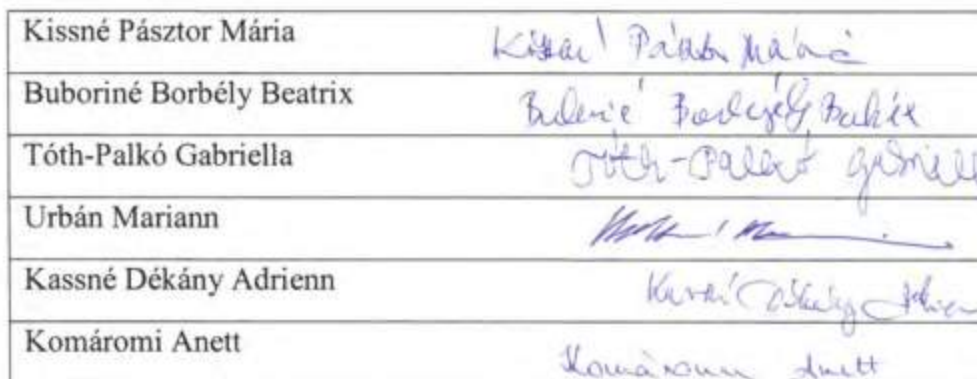 Kissné Pásztor Mária Kissné Pásztor Mária
Buboriné Borbély Beatrix Buboriné Borbély Beatrix
Tóth-Palkó Gabriella Tóth-Palkó Gabriell
Urbán Mariann
Kassné Dékány Adrienn Kassné Dékány Adrien
Komáromi Anett Komáromi Anett